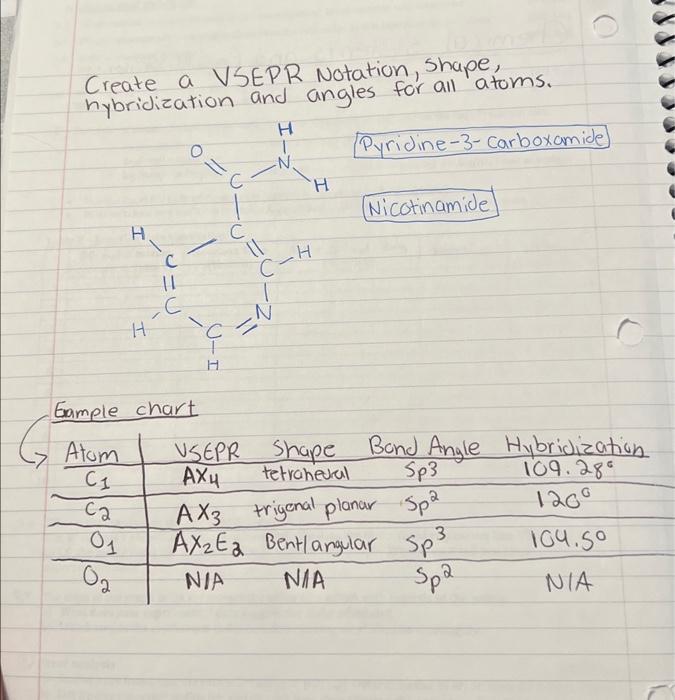 Create a VSEPR Notation, Shape,
hybridization and angles for all atoms.
Pyridine-3-carboxamide
Nicotinamide
H
O
N
C
H
H
C
C
C
H
C
N
H
C
H
Example chart
Atom VSEPR Shape Bond Angle Hybridization
C1 AX4 tetrahedral Sp3 109.28°
C2 AX3 trigonal planar Sp² 120°
O1 AX2E2 Bent/angular Sp³ 104.50
O2 N/A N/A Sp² N/A